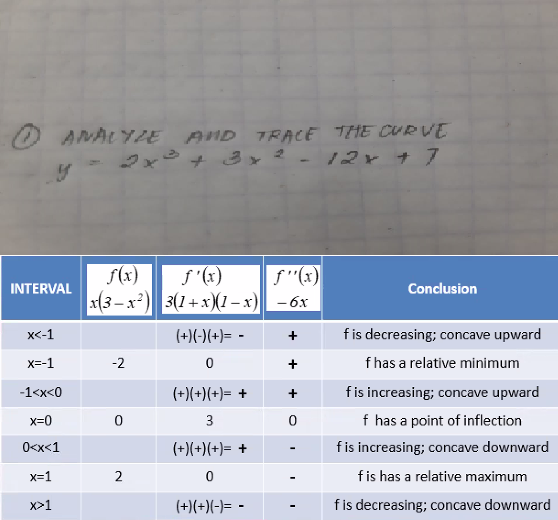 ① ANALYZE AND TRACE THE CURVE
y = 2x³ + 3x² - 12x + 7
INTERVAL f(x) x(3-x²) f'(x) 3(1+x)(1-x) f''(x) -6x Conclusion
x<-1 (+)(-)(+)= - + f is decreasing; concave upward
x=-1 -2 0 + f has a relative minimum
-1<x<0 (+)(+)(+)= + + f is increasing; concave upward
x=0 0 3 0 f has a point of inflection
0<x<1 (+)(+)(+)= + - f is increasing; concave downward
x=1 2 0 - f is has a relative maximum
x>1 (+)(+)(-)= - - f is decreasing; concave downward